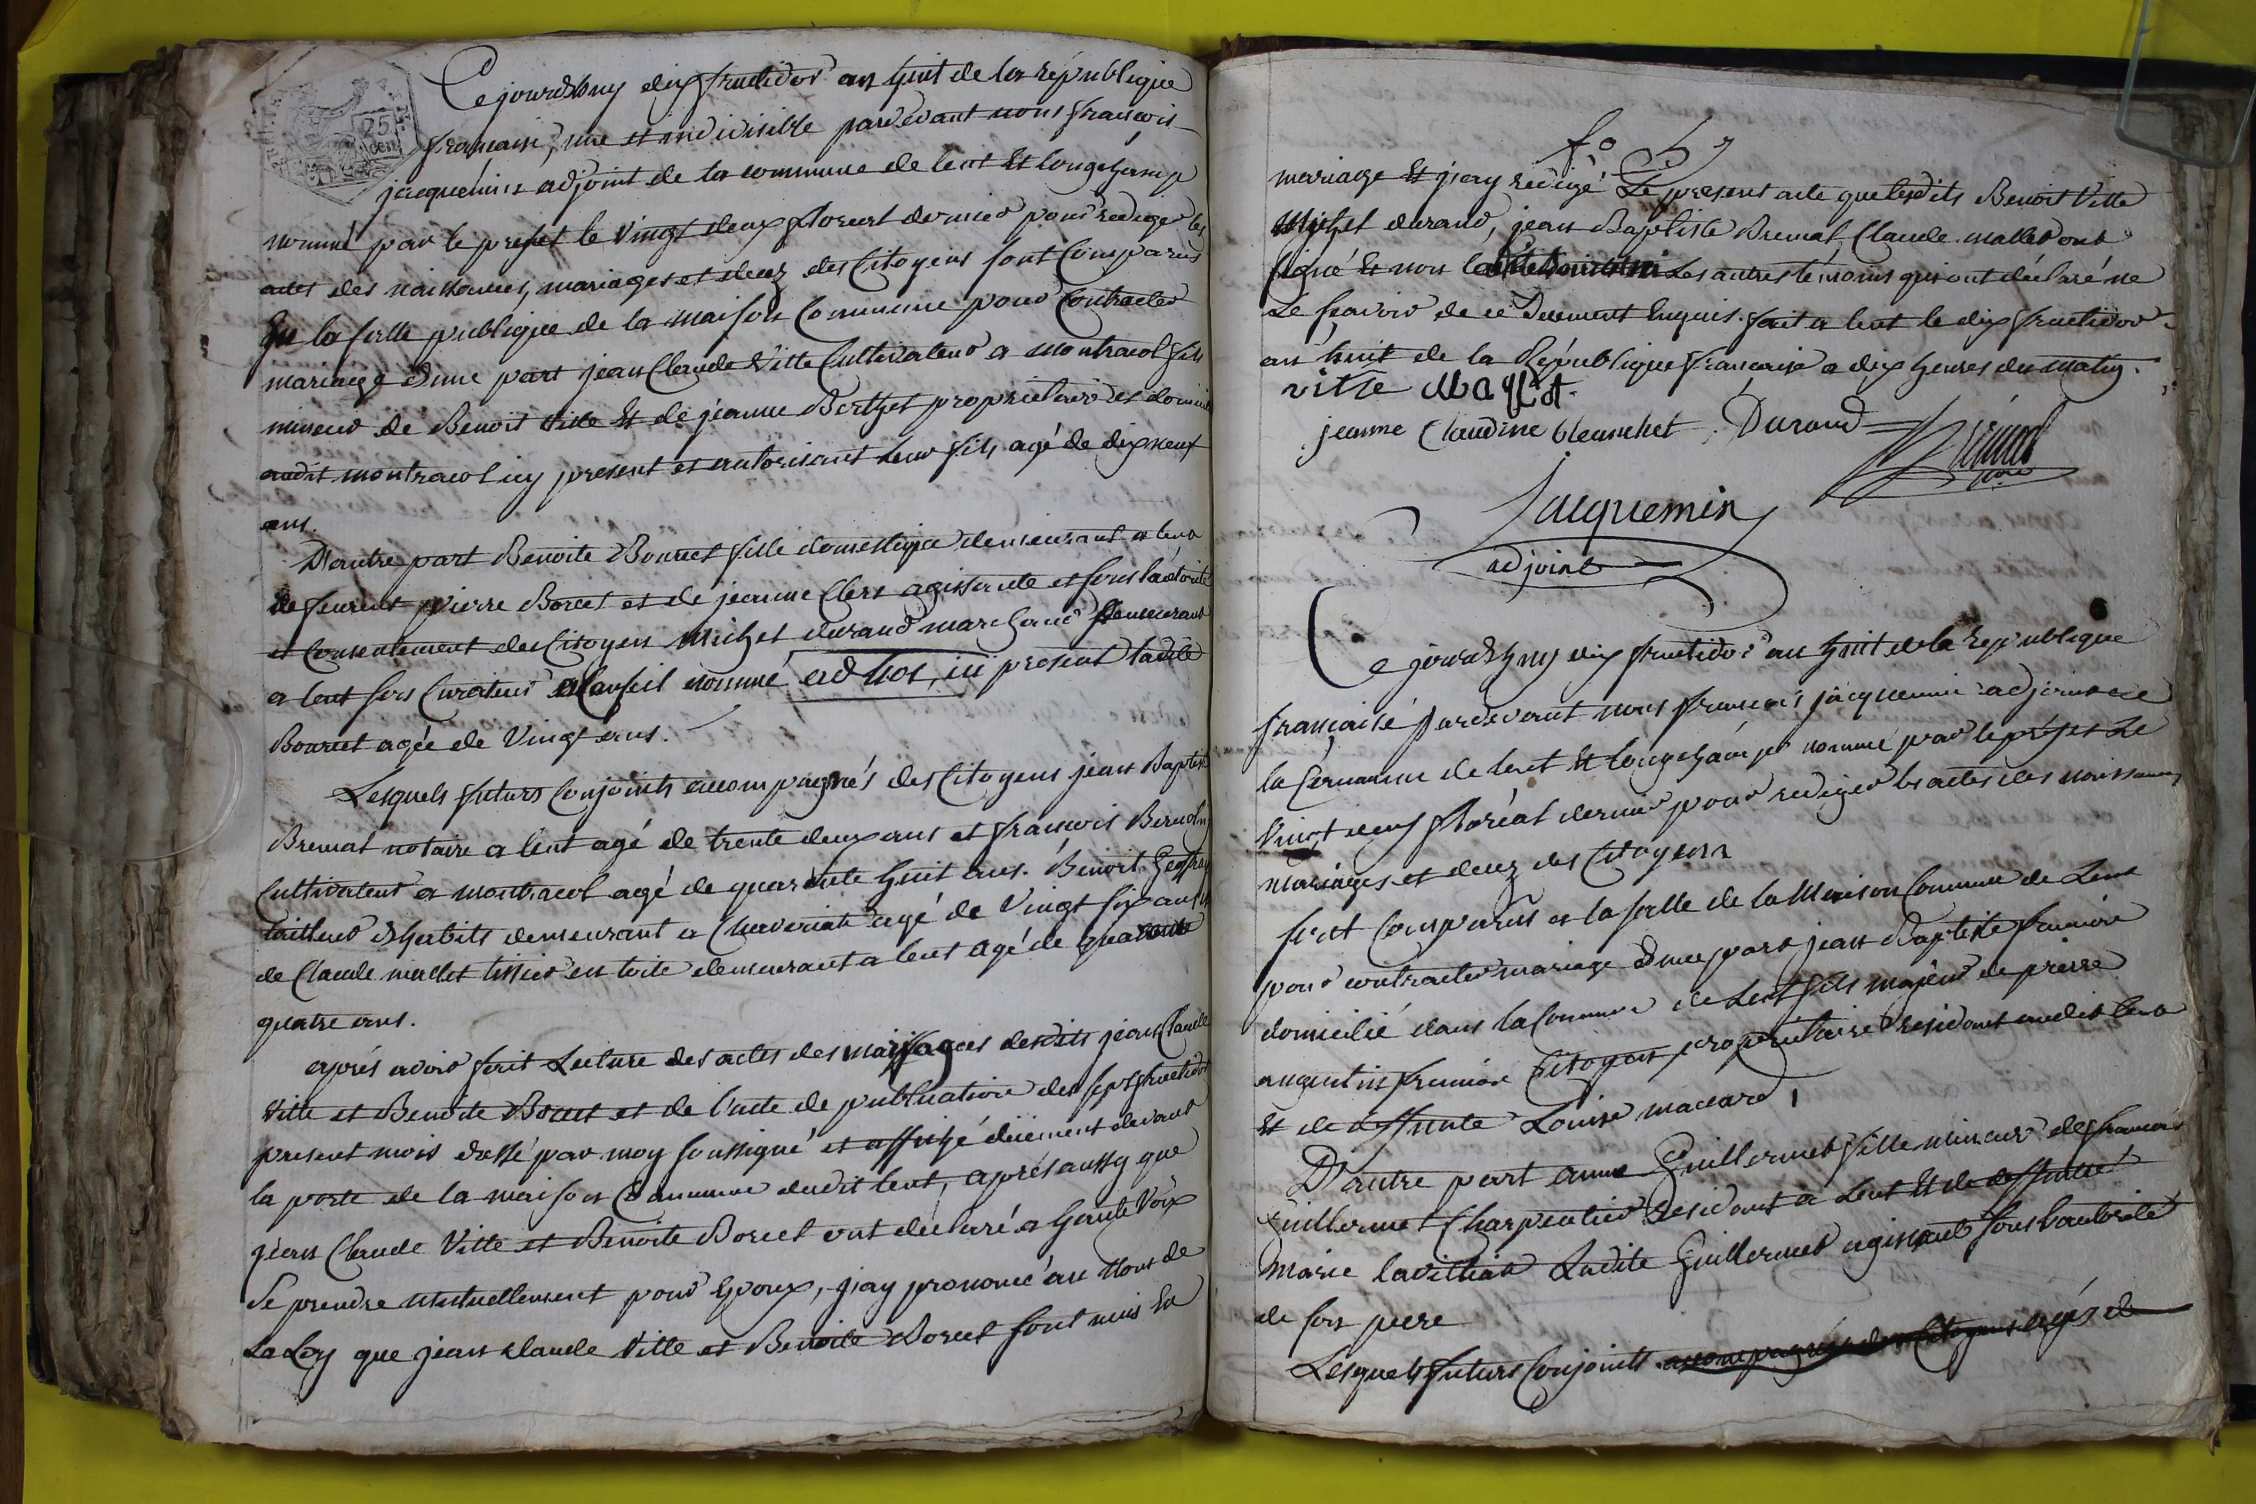 25
cen
Ce jourdhuy dix fructidor an huit de la république
francaise, une et indivisible pardevant nous françois
jacquemin adjoint de la commune de lent et longchamp
nommé par le prefet le vingt deux floreal dernier pour rediger les
actes des naissances, mariages et decez des Citoyens sont Comparus
En la salle publique de la maison Commune pour Contracter
mariage d'une part jean Claude Vitte Cultivateur a montracol fils
mineur de Benoit Vitte Et de jeanne Berthet proprietaires
audit montracol icy present et autorisant leur fils agé de dixneuf
ans.
D'autre part Benoite Bouvet fille domestique demeurant a lent
de feurent pierre Borcet et de jeanne Clerc agissante et sous l'autorité
et Consentement du Citoyen Michel durand marchand demeurant
a lent son Curateur Conseil nommé ad hoc, ici present ladite
Bouvet agée de Vingt ans.
Lesquels futurs Conjoints accompagnés des Citoyens jean Baptiste
Bremal notaire a lent agé de trente deux ans et françois
Cultivateur a montracol agé de quarante huit ans. Benoit Geoffray
tailleur d'habits demeurant a Chaveriat agé de Vingt six ans et
de Claude mallet tissier en toile demeurant a lent agé de quarante
quatre ans.
après avoir fait Lecture des actes des naissances desdits jean Claude
Vitte et Benoite Borcet et de l'acte de publication du sept fructidor
present mois dressé par moy soussigné et affiché düement devant
la porte de la maison Commune dudit lent, après aussy que
jean Claude Vitte et Benoite Borcet ont déclaré a haute Voix
Se prendre Mutuellement pour Epoux, j'ay prononcé au Nom de
La Loy que jean Claude Vitte et Benoite Borcet sont unis En
fo 57
mariage Et j'ay redigé Le present acte que lesdits Benoit Vitte
Michel durand, jean Baptiste Bremal, Claude mallet ont
signé Et non Les autres témoins qui ont déclaré ne
Le scavoir de ce Duement Enquis. fait a lent le dix fructidor
an huit de la République francaise a dix heures du matin.
vitte Mallet.
jeanne Claudine bleanchet Durand
Jacquemin
adjoint
Ce jourdhuy dix fructidor an huit de la Republique
française pardevant nous françois jacquemin adjoint de
la Commune de lent Et longchamp nommé par le préfet Le
Vingt deux floréal dernier pour rediger les actes des naissances,
mariages et decez des Citoyens
sont Comparus a la salle de la Maison Commune de Lent
pour contracter mariage d'une part jean Baptiste
domicilié dans la Commune de Lent fils majeur de pierre
augustin Citoyen proprietaire residant audit lent
Et de deffunte Louise macard,
D'autre part anne Guillermet fille mineur de françois
Guillermet Charpentier residant a Lent Et de deffunte
Marie Ladite Guillermet agissant sous l'autorité
de son pere
Lesquels futurs Conjoints accompagnés des Citoyens agés de